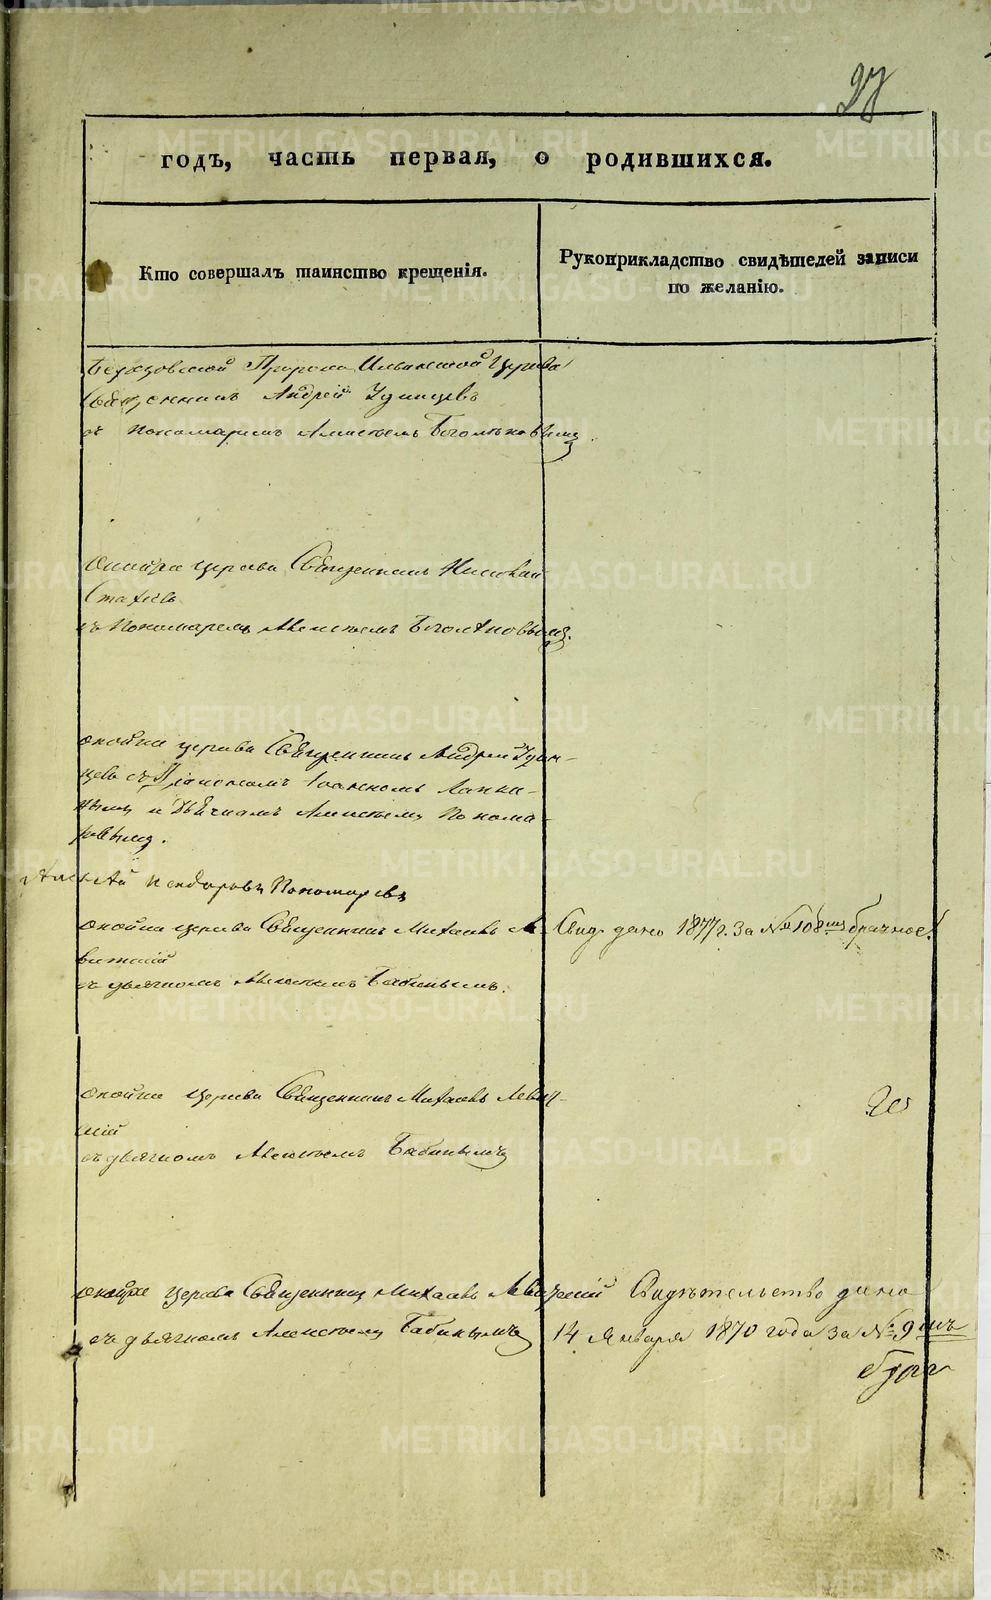 27
годъ, часть первая, о родившихся.
Кто совершалъ таинство крещенія.
Рукоприкладство свидѣтелей записи
по желанію.
Пророко Ильинской Церкви
Священникъ Андрей Удинцевъ
съ пономаремъ Алексѣемъ
Церкви Священникъ Николай
съ Пономаремъ Алексѣемъ
оной же церкви Священникъ Андрей Удин-
цевъ съ Діакономъ Іоанномъ
и Дьячкомъ Алексѣемъ Понома-
ревымъ.
Пономаревъ
оной же церкви Священникъ Михаилъ Ле-
витскій
съ дьячкомъ Алексѣемъ Бабинымъ.
Свид. дано 1877 г. за № 108мъ брачное.
оной же церкви Священникъ Михаилъ Левит-
скій
съ дьячкомъ Алексѣемъ Бабинымъ
оной же церкви Священникъ Михаилъ Левитскій
съ дьячкомъ Алексѣемъ Бабинымъ
Свидѣтельство дано
14 Января 1870 года за № 9мъ
METRIKI.GASO-URAL.RU